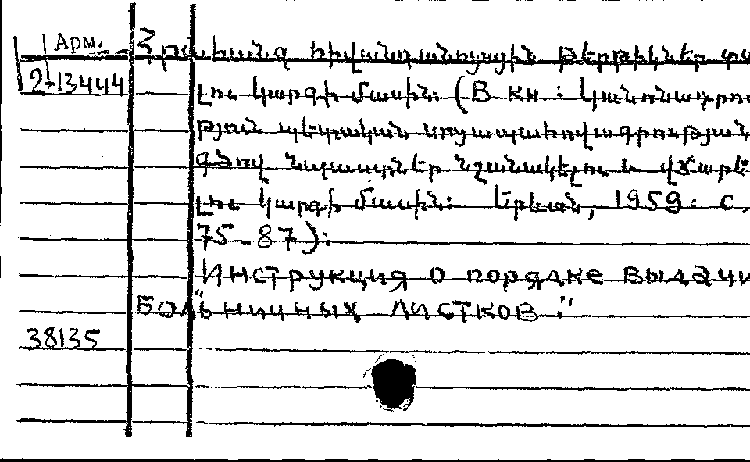 Арм.
2-13444
Հրահանգ հիվանդանոցային թերթիկներ տա
լու կարգի մասին: (В кн: Կանոնադրու
թյան պետական սոցապահովագրության
գծով նպաստներ նշանակելու և վճարե
լու կարգի մասին: Երևան, 1959. с.
75-87):
"Инструкция о порядке выдачи
больничных листков."
38135